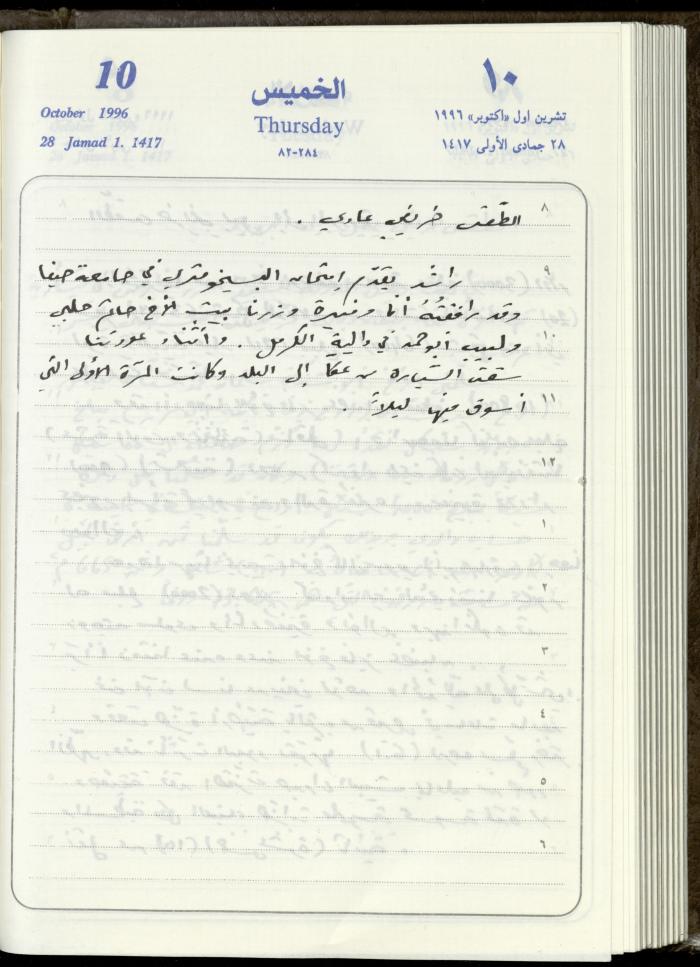 10
October 1996
28 Jamad 1. 1417
الخميس
Thursday
٢٨٤-٨٢
١٠
تشرين اول «اكتوبر» ١٩٩٦
٢٨ جمادى الأولى ١٤١٧
٨
الطقس خريفي عادي .
٩
راشد يقدّم امتحان البسيخومتري في جامعة حيفا
وقد رافقتُهُ أنا ومنيرة وزرنا بيت الأخ حاتم حلبي
١٠
ولبيب أبو حمد في دالية الكرمل . وأثناء عودتنا
سقتُ السيّارة من عكّا إلى البلد وكانت المرّة الأولى التي
١١
أسوق فيها ليلاً .
١٢
١
٢
٣
٤
٥
٦